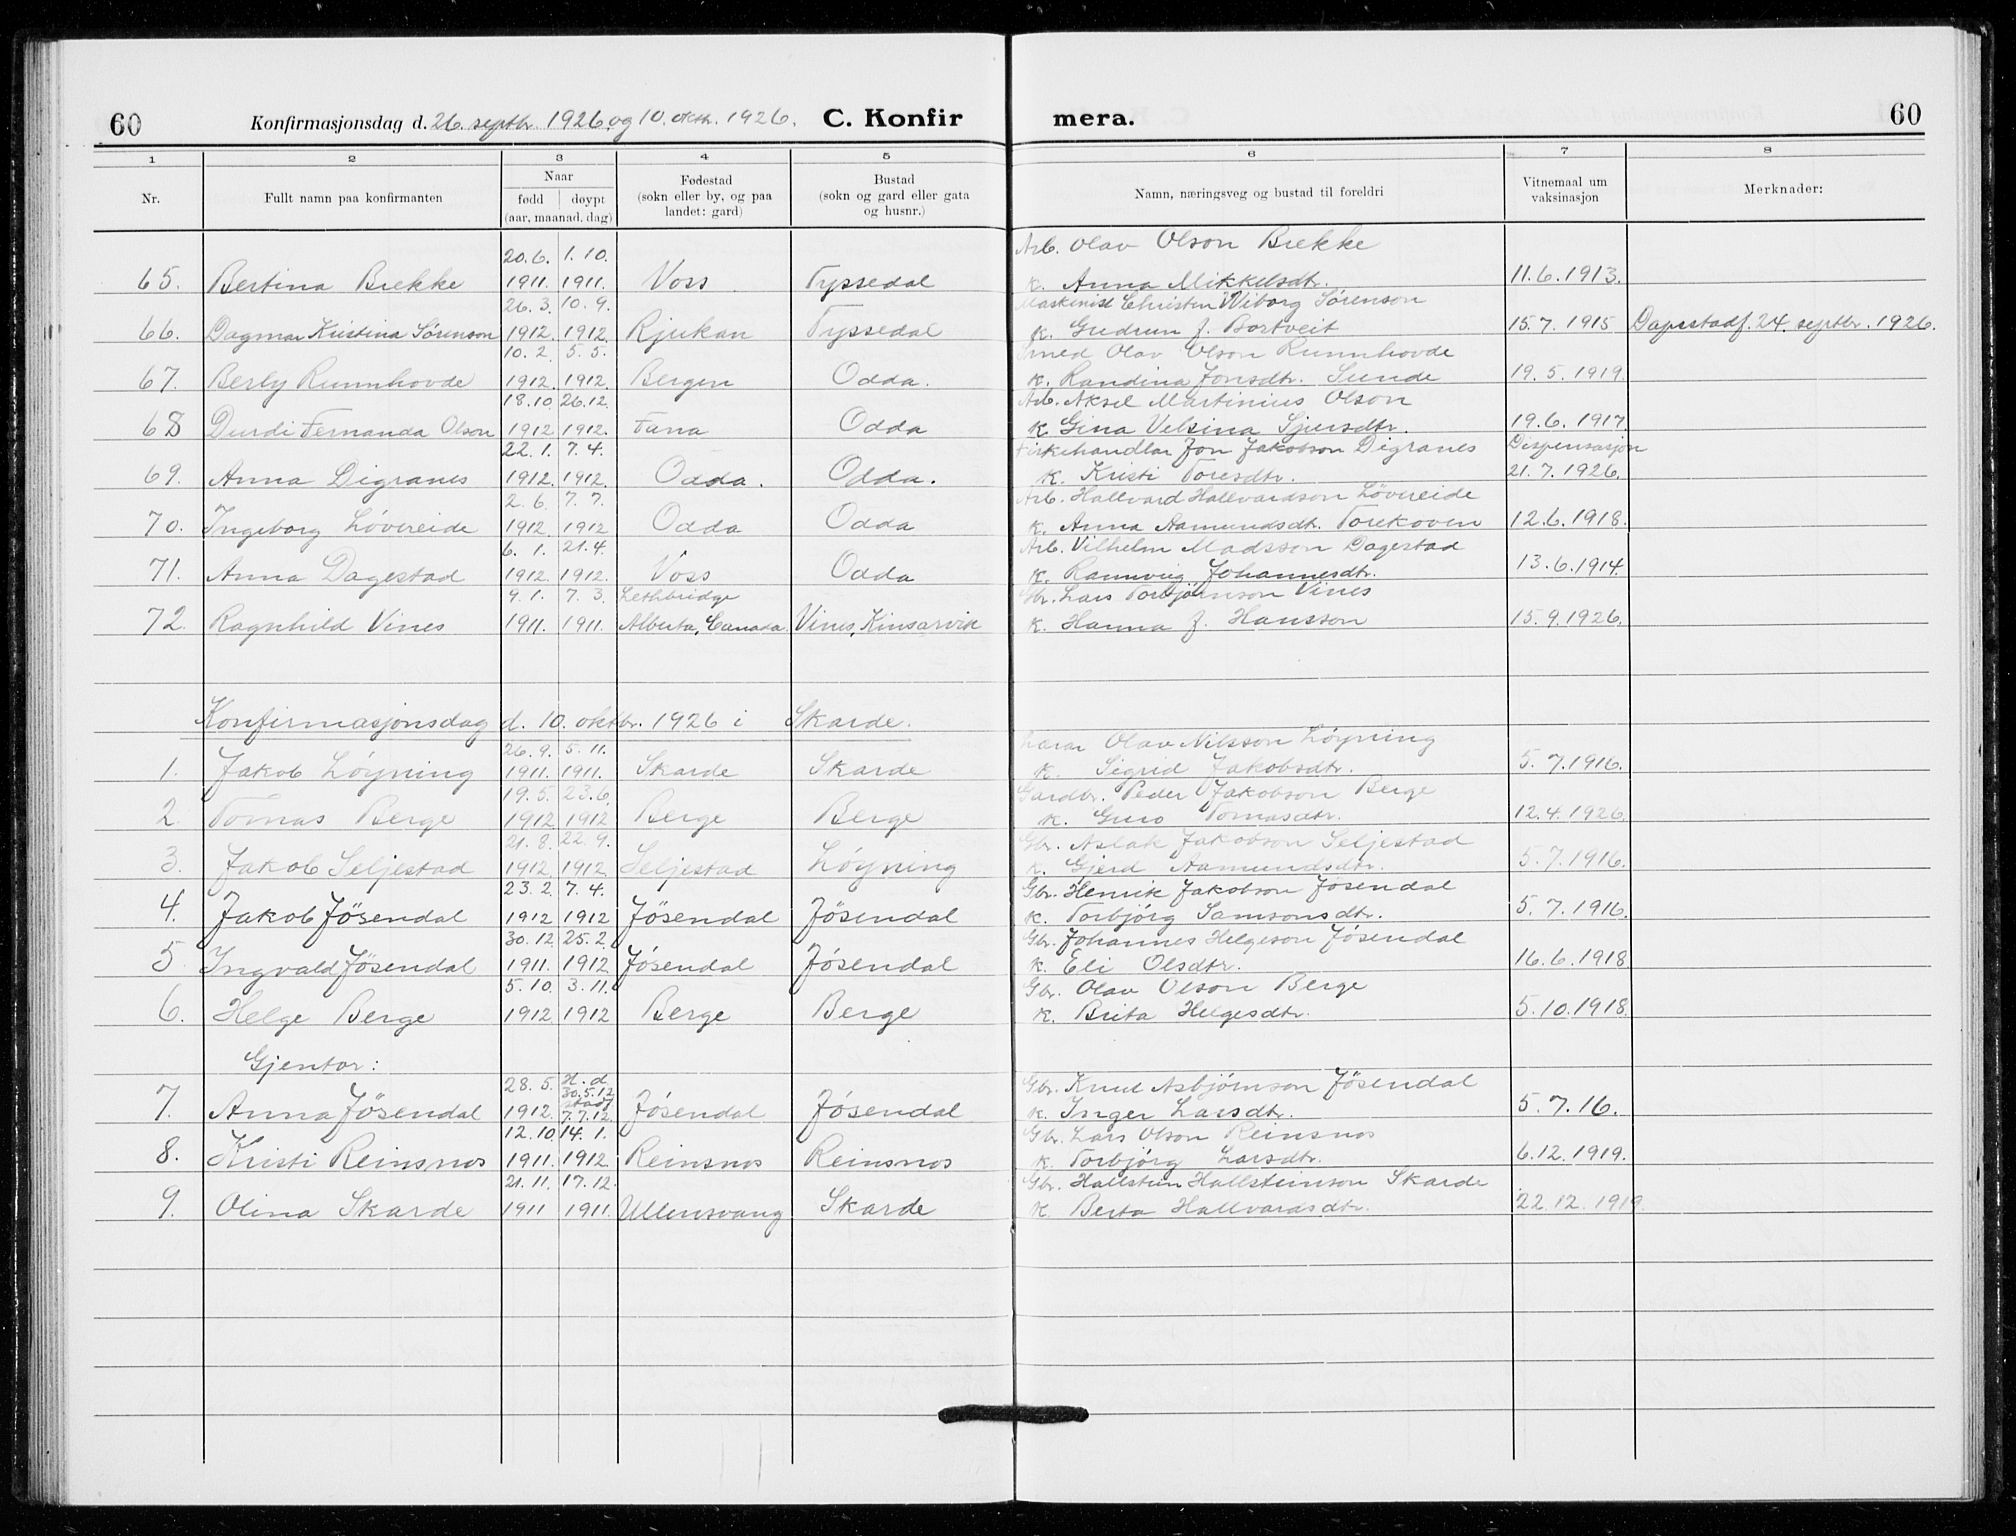 60 Konfirmasjonsdag d. 26. septbr 1926 og 10. oktr. 1926. C. Konfirmera. 60
1 2 3 4 5 6 7 8
Nr. Fullt namn paa konfirmanten Naar fødd døypt (aar, maanad, dag) Fødestad (sokn eller by, og paa landet: gard) Bustad (sokn og gard eller gata og husnr.) Namn, næringsveg og bustad til foreldri Vitnemaal um vaksinasjon Merknader:
20.6. 1.10. Arb. Olav Olson Brekke
65. Bertina Brekke 1911. 1911. Voss Tyssedal k. Anna Mikkelsdtr. 11.6.1913.
26.3. 10.9. Maskinist Christen Wiborg Sørenson
66. Dagmar Kristina Sørenson 1912. 1912. Rjukan Tyssedal k. Gudrun f. Bortveit 15.7.1915 Dapsstadf. 24. septbr. 1926.
10.2. 5.5. Smed Olav Olson Runnhovde
67. Berly Runnhovde 1912. 1912. Bergen Odda. k. Randina Jonsdtr. Sunde 19.5.1919.
18.10. 26.12. Arb. Aksel Martinius Olson
68 Durdi Fernanda Olson 1912 1912. Fana Odda k. Gina Velsina Sjursdtr. 19.6.1917.
22.1. 7.4. Fiskehandlar Jon Jakobson Digranes Dispensasjon
69. Anna Digranes 1912. 1912. Odda. Odda. k. Kristi Toresdtr. 21.7.1926.
2.6. 7.7. Arb. Hallvard Hallvardson Løvereide
70. Ingeborg Løvereide 1912. 1912 Odda Odda k. Anna Aamundsdt. Torekoven 12.6.1918.
6.1. 21.4. Arb. Vilhelm Madsson Dagestad
71. Anna Dagestad 1912. 1912. Voss Odda k. Rannveig Johannesdtr. 13.6.1914.
4.1. 7.3. Lethbridge Gbr. Lars Torbjørnson Vines
72. Ragnhild Vines 1911. 1911. Alberta, Canada. Vines, Kinsarvik k. Hanna f. Hansson 15.9.1926.
Konfirmasjonsdag d. 10. oktbr. 1926 i Skarde.
26.9. 5.11. Lærar Olav Nilsson Løyning
1. Jakob Løyning 1911. 1911. Skarde Skarde k. Sigrid Jakobsdtr. 5.7.1916.
19.5. 23.6. Gardbr. Peder Jakobson Berge
2. Tomas Berge 1912 1912 Berge Berge k. Guro Tomasdtr. 12.4.1926.
21.8. 22.9. Gbr. Aslak Jakobson Seljestad
3. Jakob Seljestad 1912 1912. Seljestad Løyning k. Gjerd Aamundsdtr. 5.7.1916.
23.2. 7.4. Gbr. Henrik Jakobson Jösendal
4. Jakob Jösendal 1912 1912 Jösendal Jösendal k. Torbjörg Samsonsdtr. 5.7.1916.
30.12 25.2. Gbr. Johannes Helgeson Jösendal
5 Ingvald Jösendal 1911. 1912 Jösendal Jösendal k. Eli Olsdtr. 16.6.1918.
5.10. 3.11. Gbr. Olav Olson Berge
6. Helge Berge 1912 1912 Berge Berge k. Brita Helgesdtr. 5.10.1918.
Gjentor:
28.5. H.d. 30.5.12 Gbr. Knut Asbjørnson Jösendal
7. Anna Jösendal 1912. stadf 7.7.12. Jösendal Jösendal k. Inger Larsdtr. 5.7.16.
12.10. 14.1. Gbr. Lars Olson Reinsnos
8. Kristi Reinsnos 1911. 1912 Reinsnos Reinsnos k. Torbjörg Larsdtr. 6.12.1919.
21.11. 17.12. Gbr. Hallstein Hallsteinson Skarde
9. Olina Skarde 1911 1911. Ullensvang Skarde k. Berta Hallvardsdtr. 22.12.1919.